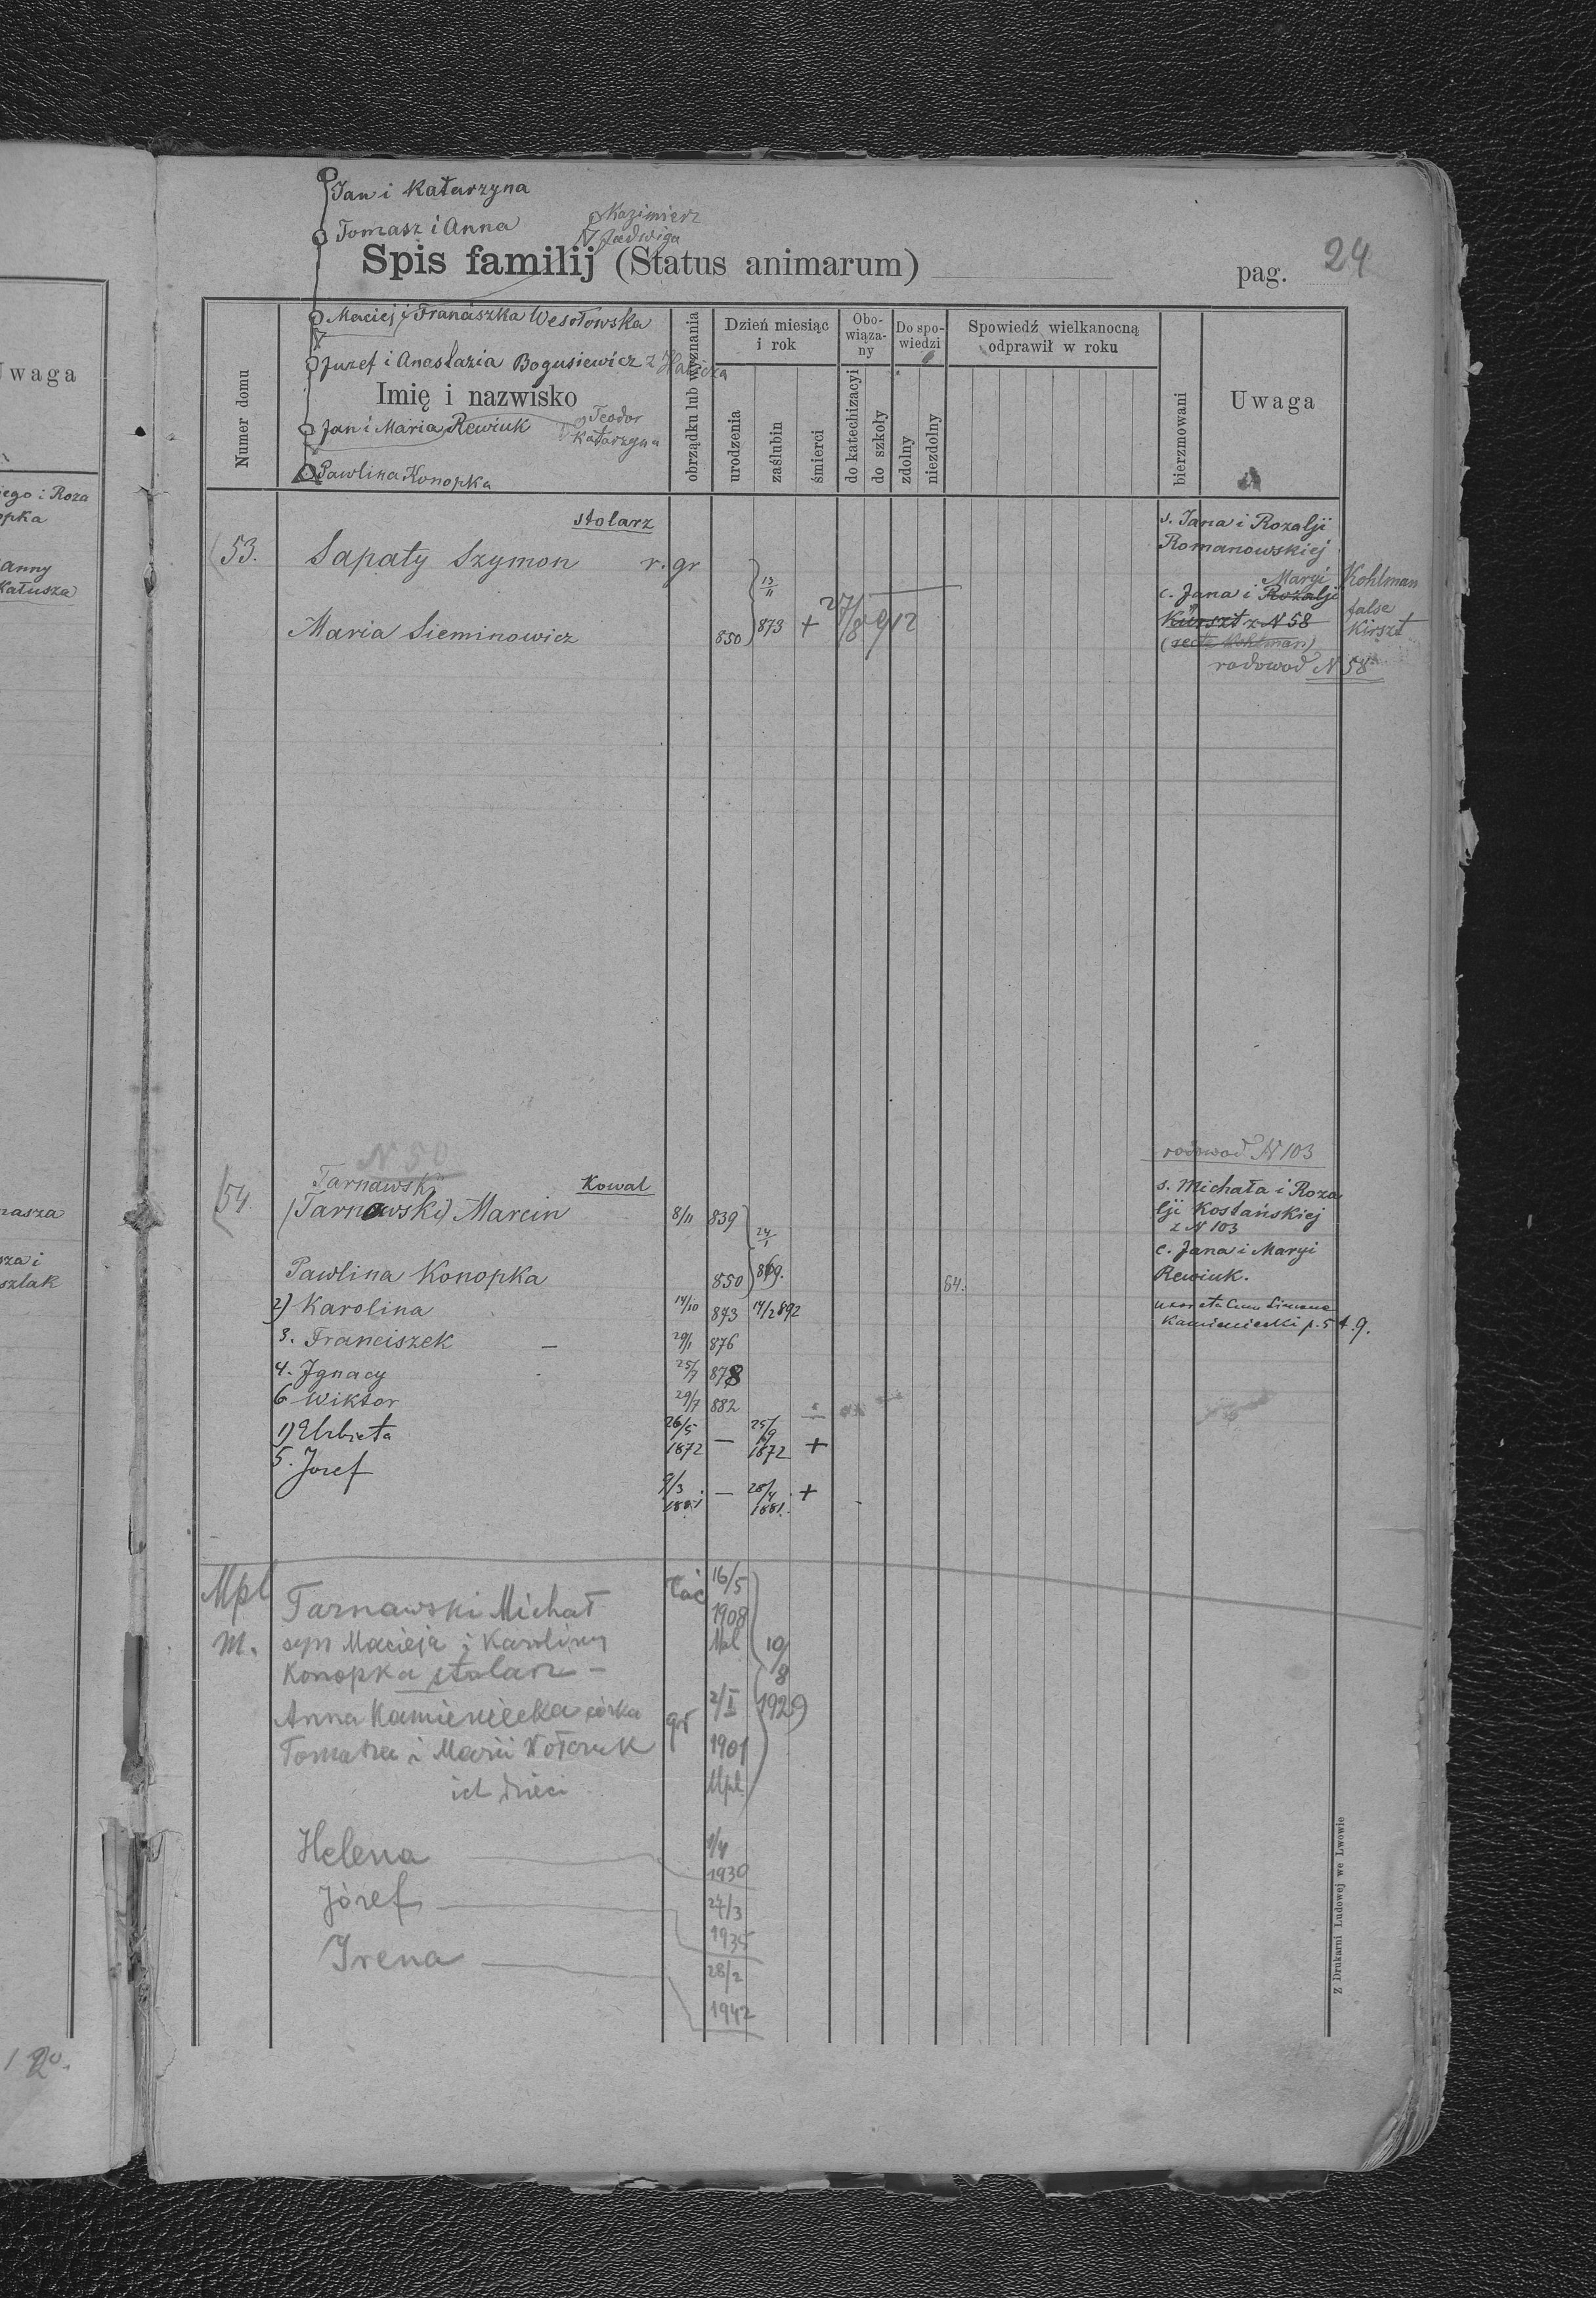 Jan i Katarzyna
Tomasz i Anna
Kazimierz
Jadwiga
Spis familij (Status animarum)
pag. 24
Maciej i Franciszka Wesołowska
Juzef i Anastazia Bogusiewicz z Halicza
Imię i nazwisko
Jan i Maria Rewiuk
Teodor
Katarzyna
Pawlina Konopka
Numer domu
obrządku lub wyznania
Dzień miesiąc
i rok
urodzenia
zaślubin
śmierci
Obo-
wiąza-
ny
do katechizacyi
do szkoły
Do spo-
wiedzi
zdolny
niezdolny
Spowiedź wielkanocną
odprawił w roku
bierzmowani
Uwaga
stolarz
53. Sapaty Szymon r. gr
s. Jana i Rozalji
Romanowskiej
13/11
873
Maria Sieminowicz 850 + 27/8 912
Maryi Kohlman
c. Jana i Rozalji
false
Kirszt z N 58 Kirszt
(recte Kohlman)
rodowod N 58
N 50
rodowod N 103
Tarnawski
Kowal
54 (Tarnowski) Marcin 8/11 839
s. Michała i Roza
lji Kostańskiej
z N 103
24/1
869.
Pawlina Konopka 850 64.
c. Jana i Maryi
Rewiuk.
2) Karolina 14/10 873 14/2 892
Kamieniecki p. 54.9.
3. Franciszek – 29/1 876
4. Ignacy 25/7 878
6 Wiktor 29/7 882
1) Elzbieta 26/5 1872 – 25/9 1872 +
5. Jozef 9/3 1881 – 28/4 1881. +
Mpl
m.
Tarnawski Michał łać 16/5
1908
Mpl
syn Macieja i Karoliny
Konopka stolarz –
10/8
1929
Anna Kamieniecka córka gr 2/I
1901
Mpl
Tomasza i Marii Wołczuk
ich dzieci
Helena 1/4
1930
Józef 24/3
1935
Irena 28/2
1942
Z Drukarni Ludowej we Lwowie
Uwaga
iego i Roza
opka
Anny
Kałusza
masza
sza i
szlak
120.